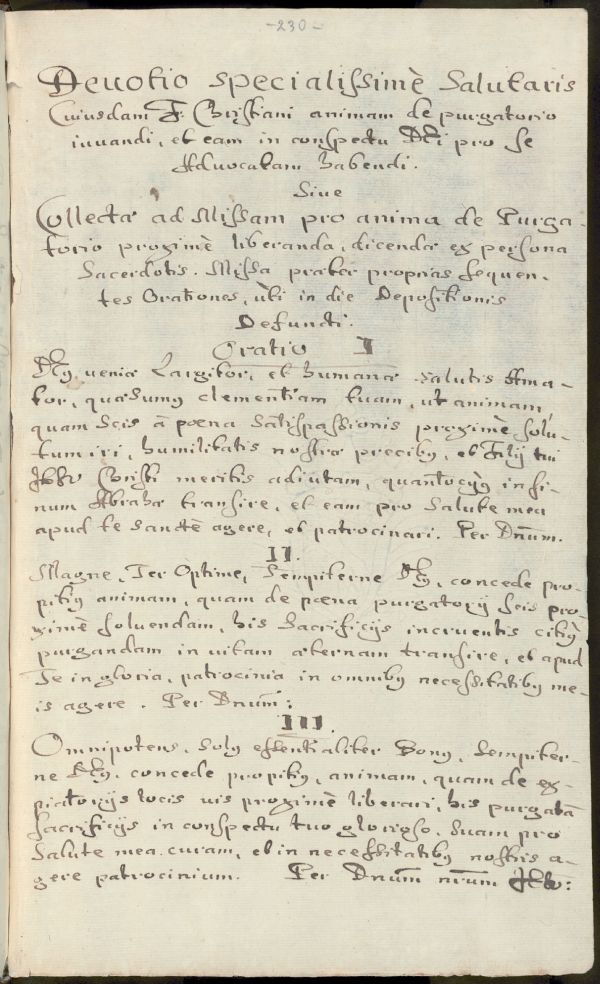 -230-
Devotio specialissimè Salutaris
Cuiusdam F. Christiani animam de purgatorio
iuvandi, et eam in conspectu Dei pro se
Advocatam habendi.
Sive
Collectæ ad Missam pro anima de Purga-
torio proximè liberanda, dicendæ ex persona
Sacerdotis. Missa præter proprias sequen-
tes Orationes, ùti in die Depositionis
Defuncti.
Oratio I
Dey veniæ Largitor, et humanæ salutis Ama-
tor, quæsumy clementiam tuam, ut animam,
quam scis à pœna Satispassionis proximè solu-
tum iri, humilitatis nostræ preciby, et Filij tui
Christi meritis adiutam, quantocyy in si-
num Abrahæ transire, et eam pro Salute mea
apud te sanctè agere, et patrocinari. Per Dnum.
II.
Magne, Ter Optime, Sempiterne Dey, concede pro-
pitiy animam, quam de pœna purgatorij scis pro
ximè solvendam, his Sacrificijs incruentis citiy
purgandam in vitam æternam transire, et apud
Te in gloria, patrocinia in omniby necessitatiby me-
is agere. Per Dnum:
III.
Omnipotens, Soly essentialiter Bony, Sempiter-
ne Dey, concede propitiy, animam, quam de ex-
piatorijs locis vis proximè liberari, his purgatā
sacrificijs in conspectu tuo glorioso, suam pro
Salute mea curam, et in necessitatiby nostris a-
gere patrocinium. Per Dnum nrum